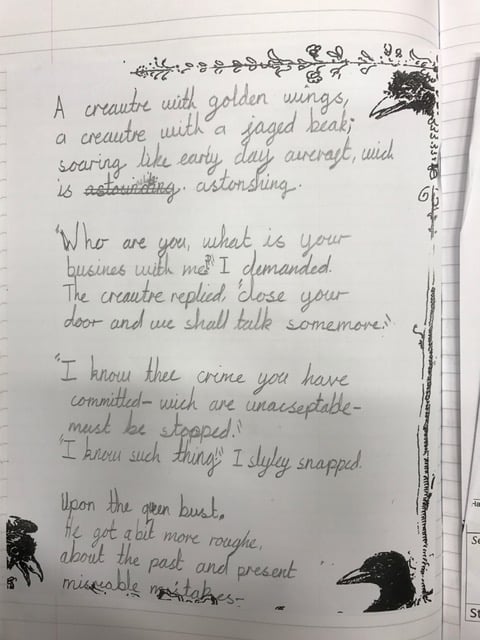 A creautre with golden wings,
a creautre with a jaged beak;
soaring like early day aurcraft, wich
is astounding. astonshing.
"Who are you, what is your
busines with me?" I demanded.
The creautre replied, "close your
door and we shall talk somemore."
"I know thee crime you have
committed- wich are unacseptable-
must be stopped."
"I know such thing" I slyley snapped.
Upon the bust.
He got a bit more roughe,
about the past and present
misreable mistakes-
Se
St